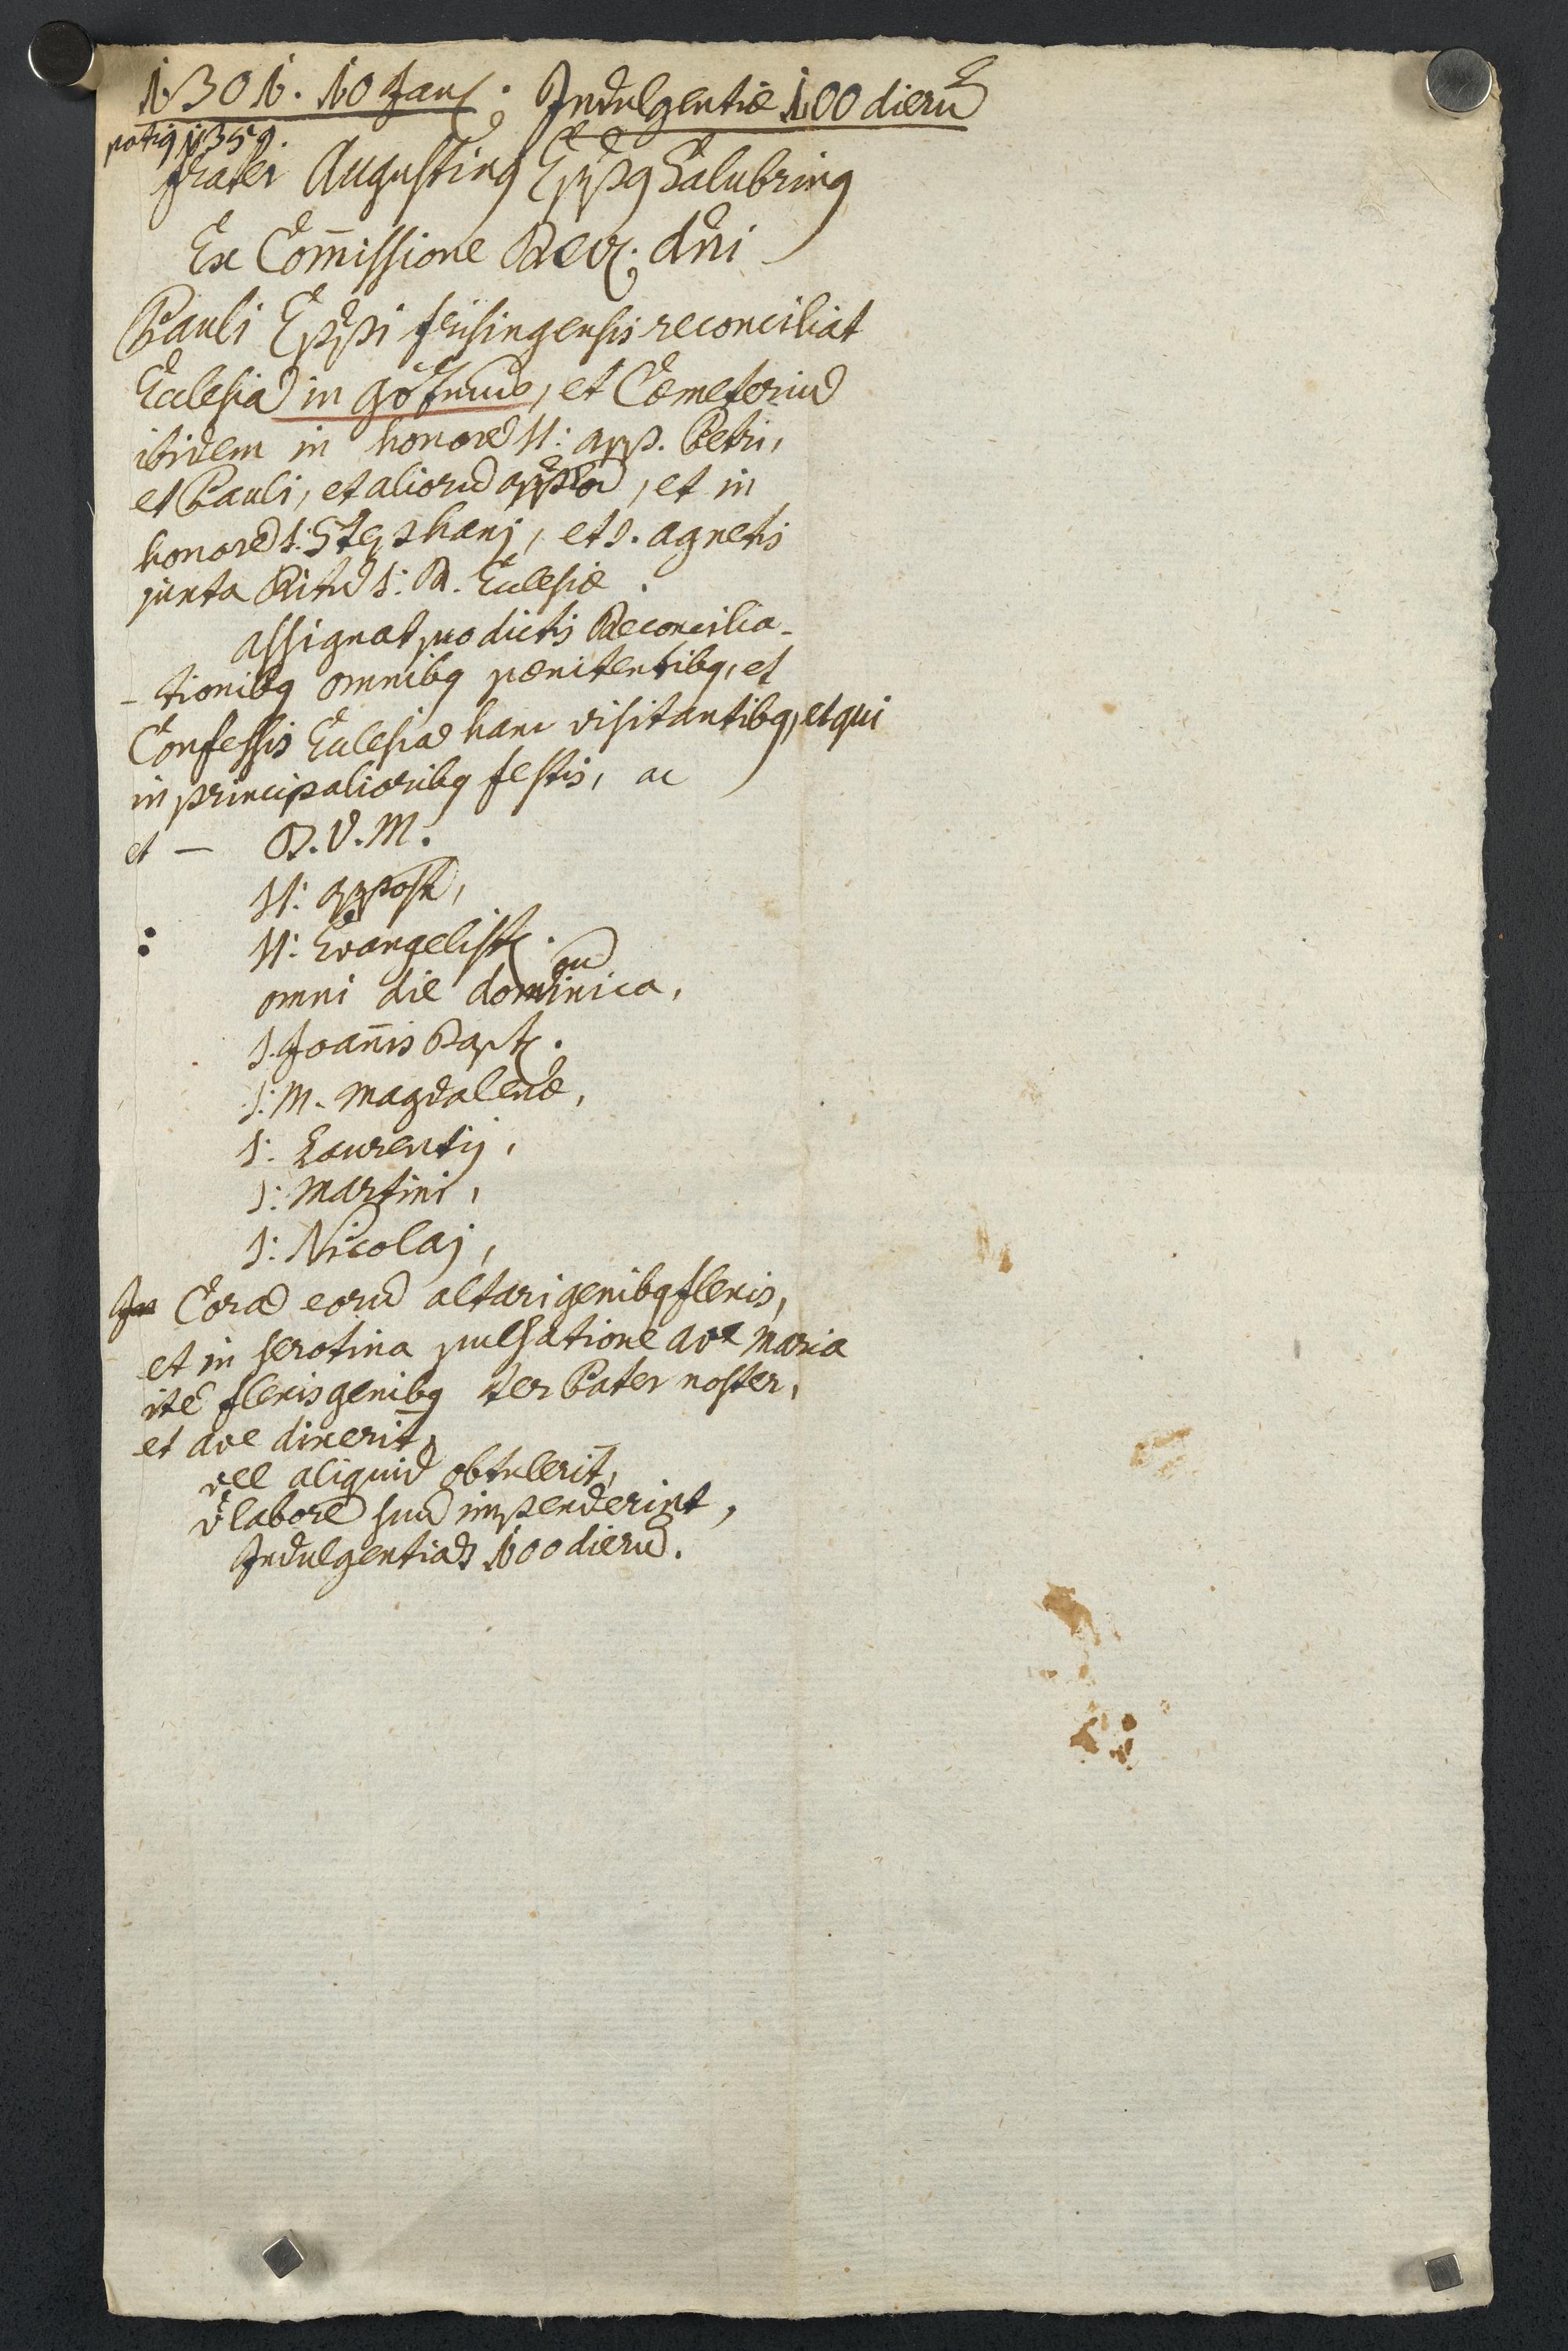 1301. 10 Janꝭ: Indulgentiæ 100 dierũ
potiꝯ 1359.
frater Augustinꝯ Eppꝯ Salubrinꝯ
Ex Com̄issione Revꝭ: dñi
Pauli Eppi frisingensis reconciliat
Ecclesiã in et Cœmeteriũ
ibidem in honorẽ SS: app. Petri,
et Pauli, et aliorũ applorũ, et in
honorẽ S: Stephanj, et S. Agnetis
juxta Ritũ S: R. Ecclesiæ.
Assignat pro dictis Reconcilia-
-tionibꝯ omnibꝯ pœnitentibꝯ, et
Confessis Ecclesiã hanc visitantibꝯ, et qui
in principalioribꝯ festis, ac
et — B. V. M.
SS: Appost,
SS: Evangelistꝭ.
omni die dominica,
S. Joan̄is Baptꝭ.
S: M. Magdalenæ,
S: Laurentij,
S: Martini,
S: Nicolaj,
Corã eorũ altari genibꝯ flexis,
et in serotina pulsatione Ave Maria
itẽ flexis genibꝯ ter Pater noster,
et ave dixerit̄,
vel aliquid obtulerit̄,
vl̃ laborẽ suũ impenderint,
Indulgentias 100 dierũ.